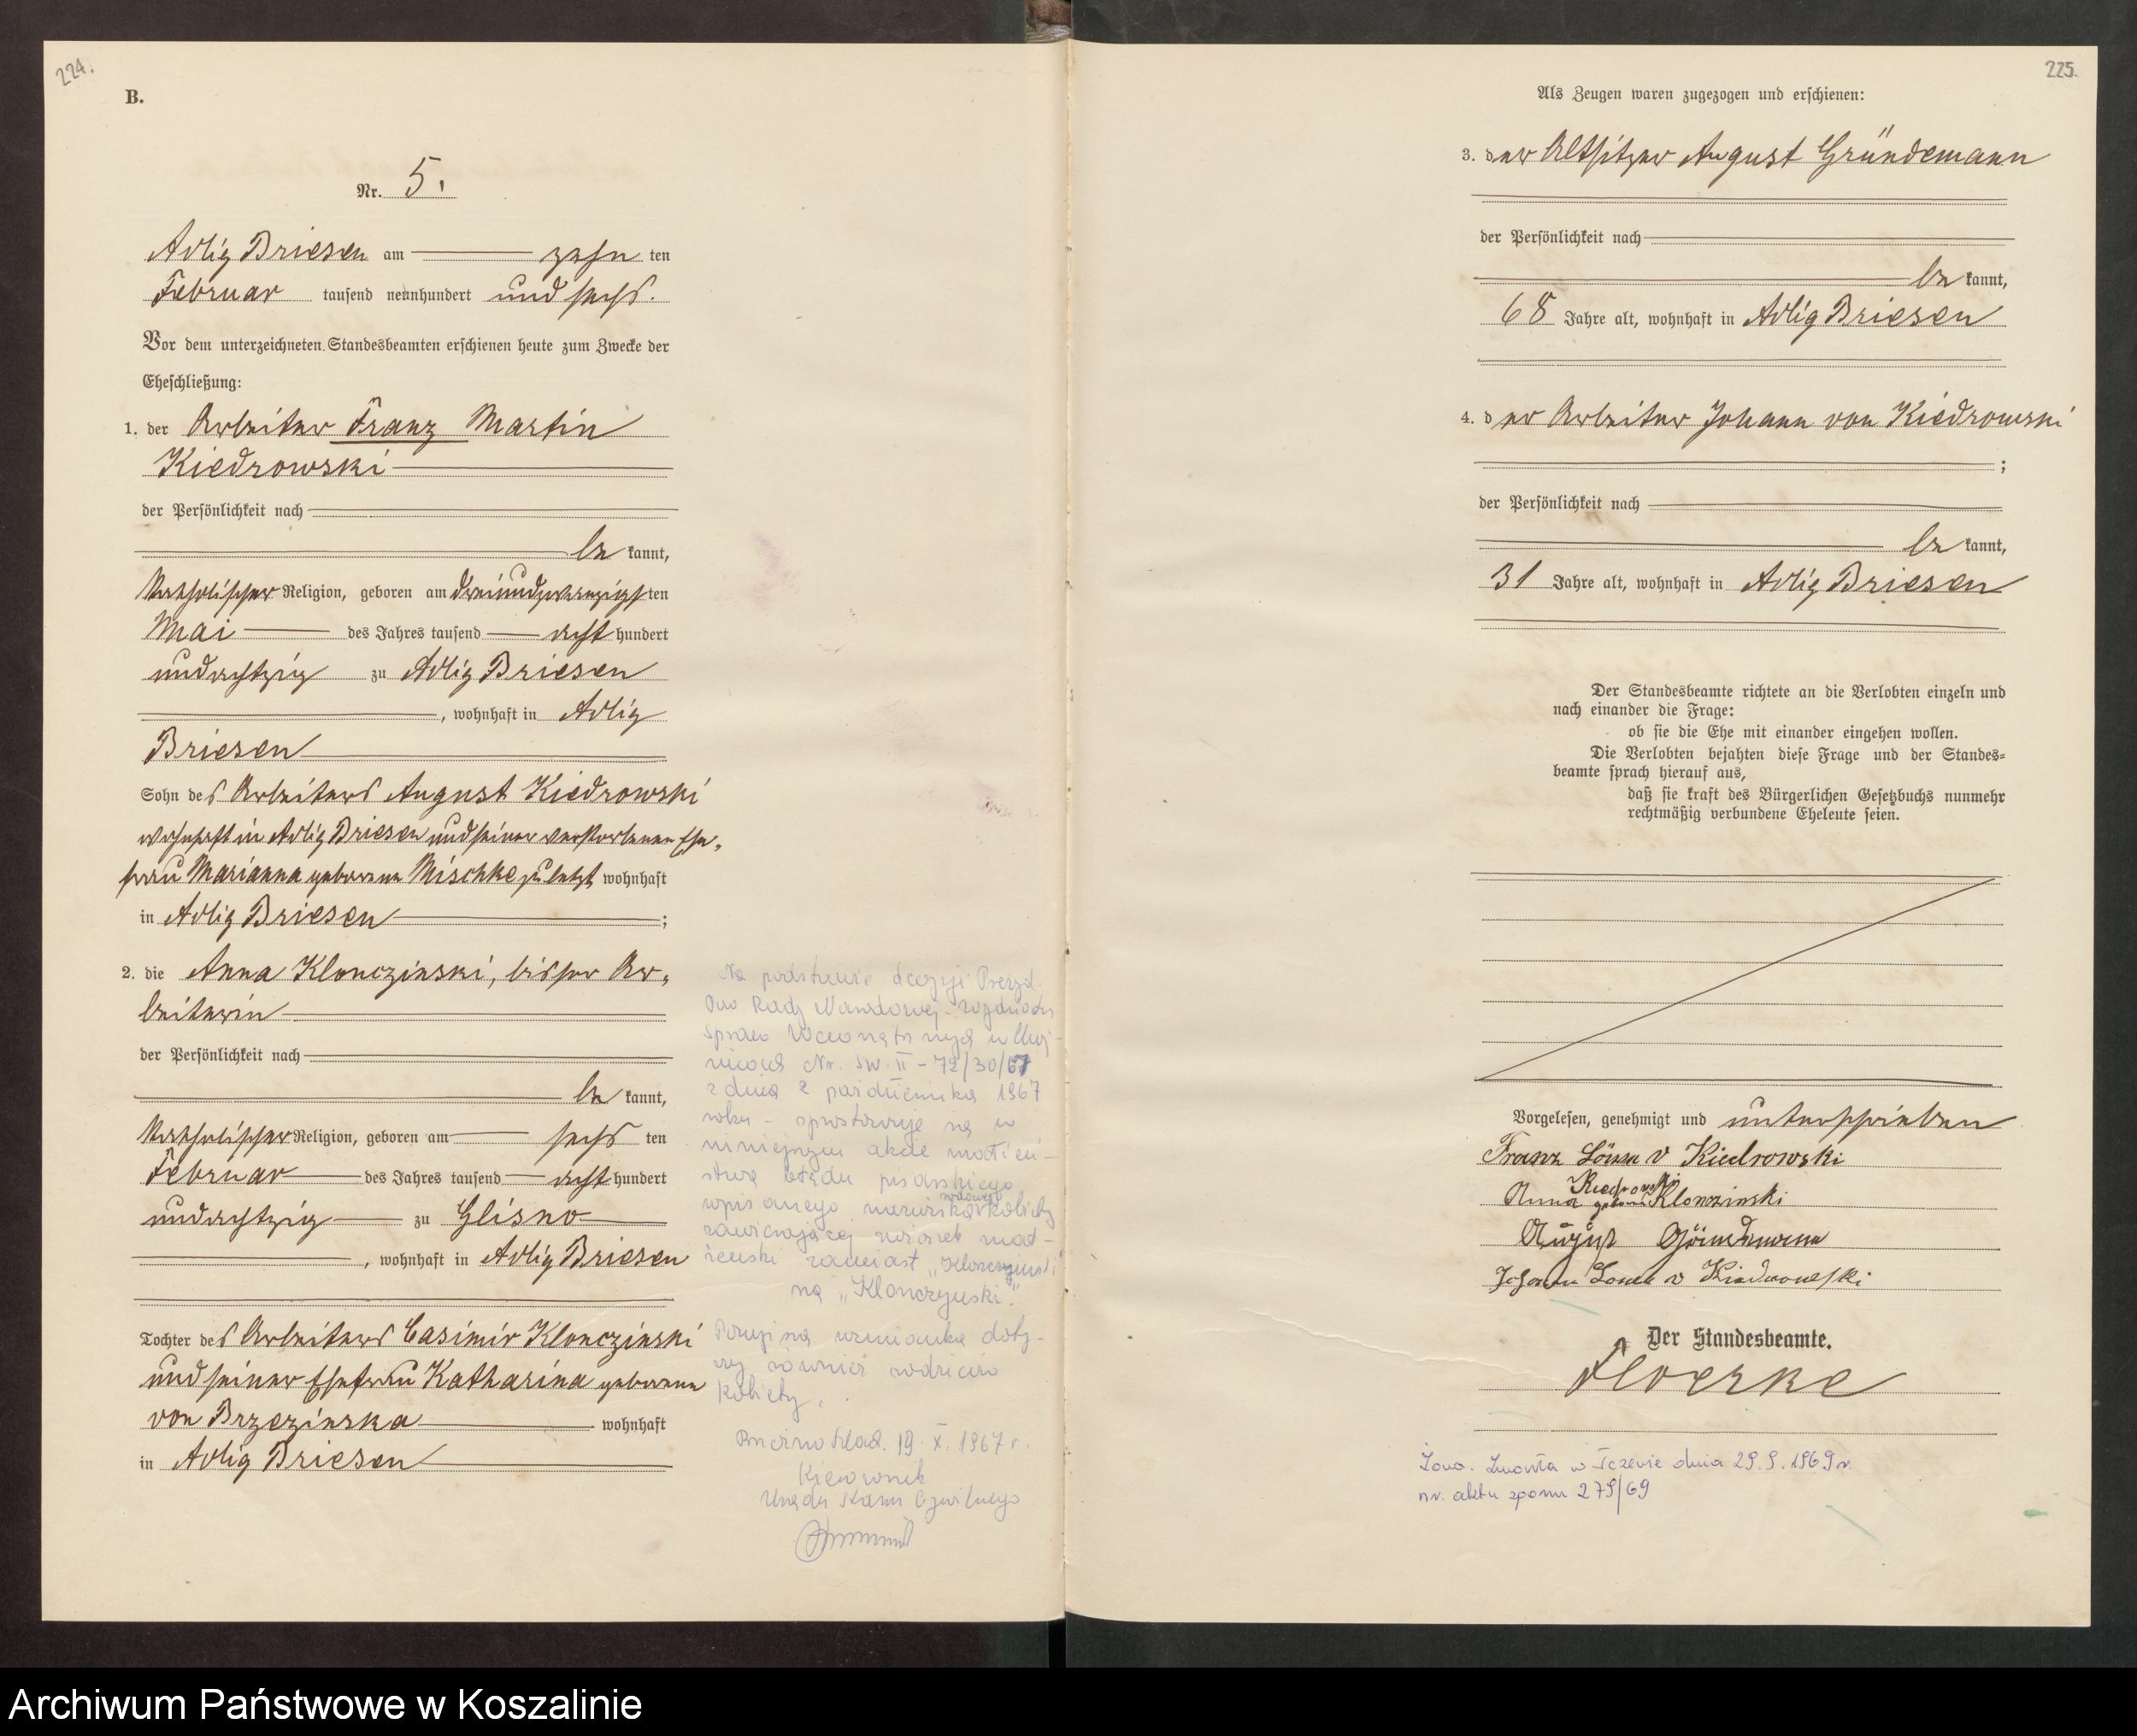 224.
B.
Nr. 5.
Adlig Briesen am zehn ten
Februar tausend neunhundert und sechs.
Vor dem unterzeichneten Standesbeamten erschienen heute zum Zwecke der
Eheschließung:
1. der Arbeiter Franz Martin
Kiedrowski
der Persönlichkeit nach
be kannt,
katholischer Religion, geboren am dreiundzwanzigsten
Mai des Jahres tausend acht hundert
undachtzig zu Adlig Briesen
, wohnhaft in Adlig
Briesen
Sohn des Arbeiters August Kiedrowski
wohnhaft in Adlig Briesen und seiner verstorbenen Ehe„
frau Marianna geborene Mischke zuletzt wohnhaft
in Adlig Briesen ;
2. die Anna Klonczinski, bisher Ar„
beiterin
der Persönlichkeit nach
be kannt,
katholischer Religion, geboren am sechs ten
Februar des Jahres tausend acht hundert
undachtzig zu Glisno
, wohnhaft in Adlig Briesen
Tochter des Arbeiters Casimir Klonczinski
und seiner Ehefrau Katharina geborene
von Brzezinska wohnhaft
in Adlig Briesen
Na podstawie decyzji Prezyd.
Pow. Rady Narodowej - Wydziału
Spraw Wewnętrznych w Choj-
nicach Nr. SW. II - 72/30/67
z dnia 2 października 1967
roku - sprostowuje się w
niniejszym akcie małżeń-
stwa błędu pisarskiego
wpisanego nazwiska rodowego kobiety
zawierającej związek mał-
żeński zamiast „Klonczinski"
na „Klonczynski."
Powyższa wzmianka doty-
czy również rodziców
kobiety.
19. X. 1967 r.
Kierownik
Urzędu Stanu Cywilnego
225.
Als Zeugen waren zugezogen und erschienen:
3. der Altsitzer August Gründemann
der Persönlichkeit nach
be kannt,
68 Jahre alt, wohnhaft in Adlig Briesen
4. der Arbeiter Johann von Kiedrowski
;
der Persönlichkeit nach
be kannt,
31 Jahre alt, wohnhaft in Adlig Briesen
Der Standesbeamte richtete an die Verlobten einzeln und
nach einander die Frage:
ob sie die Ehe mit einander eingehen wollen.
Die Verlobten bejahten diese Frage und der Standes-
beamte sprach hierauf aus,
daß sie kraft des Bürgerlichen Gesetzbuchs nunmehr
rechtmäßig verbundene Eheleute seien.
Vorgelesen, genehmigt und unterschrieben
Franz v Kiedrowski
Anna Kiedrowski geborne Klonczinski
August Gründemann
Johann v Kiedrowski
Der Standesbeamte.
Floerke
Żona. Zmarła w Tczewie dnia 29.9.1969 r.
nr. aktu zgonu 279/69
Archiwum Państwowe w Koszalinie